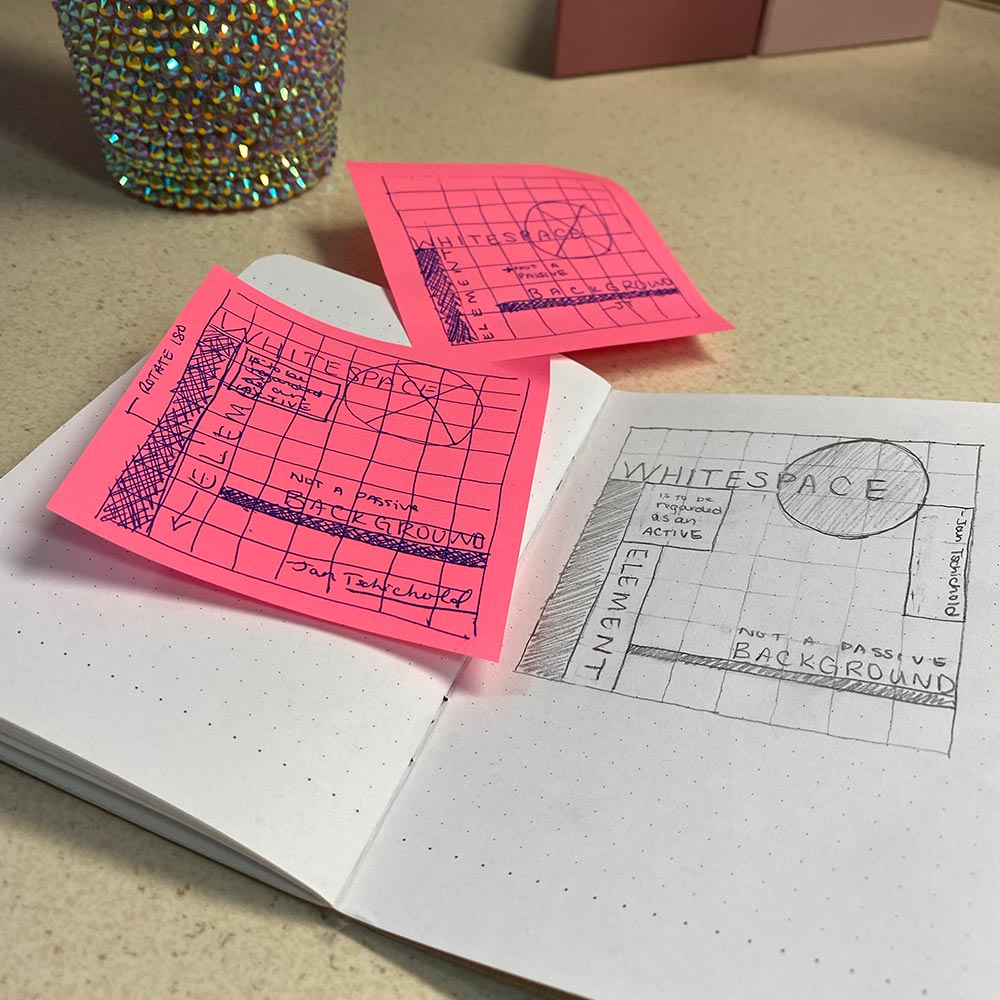 WHITESPACE
ELEMENT
*NOT A
PASSIVE
BACKGROUND
ROTATE 180
WHITESPACE
is to be
regarded
as an
ACTIVE
ELEMENT
NOT A PASSIVE
BACKGROUND
Jan Tschichold
WHITESPACE
is to be
regarded
as an
ACTIVE
ELEMENT
NOT A PASSIVE
BACKGROUND
-Jan Tschichold